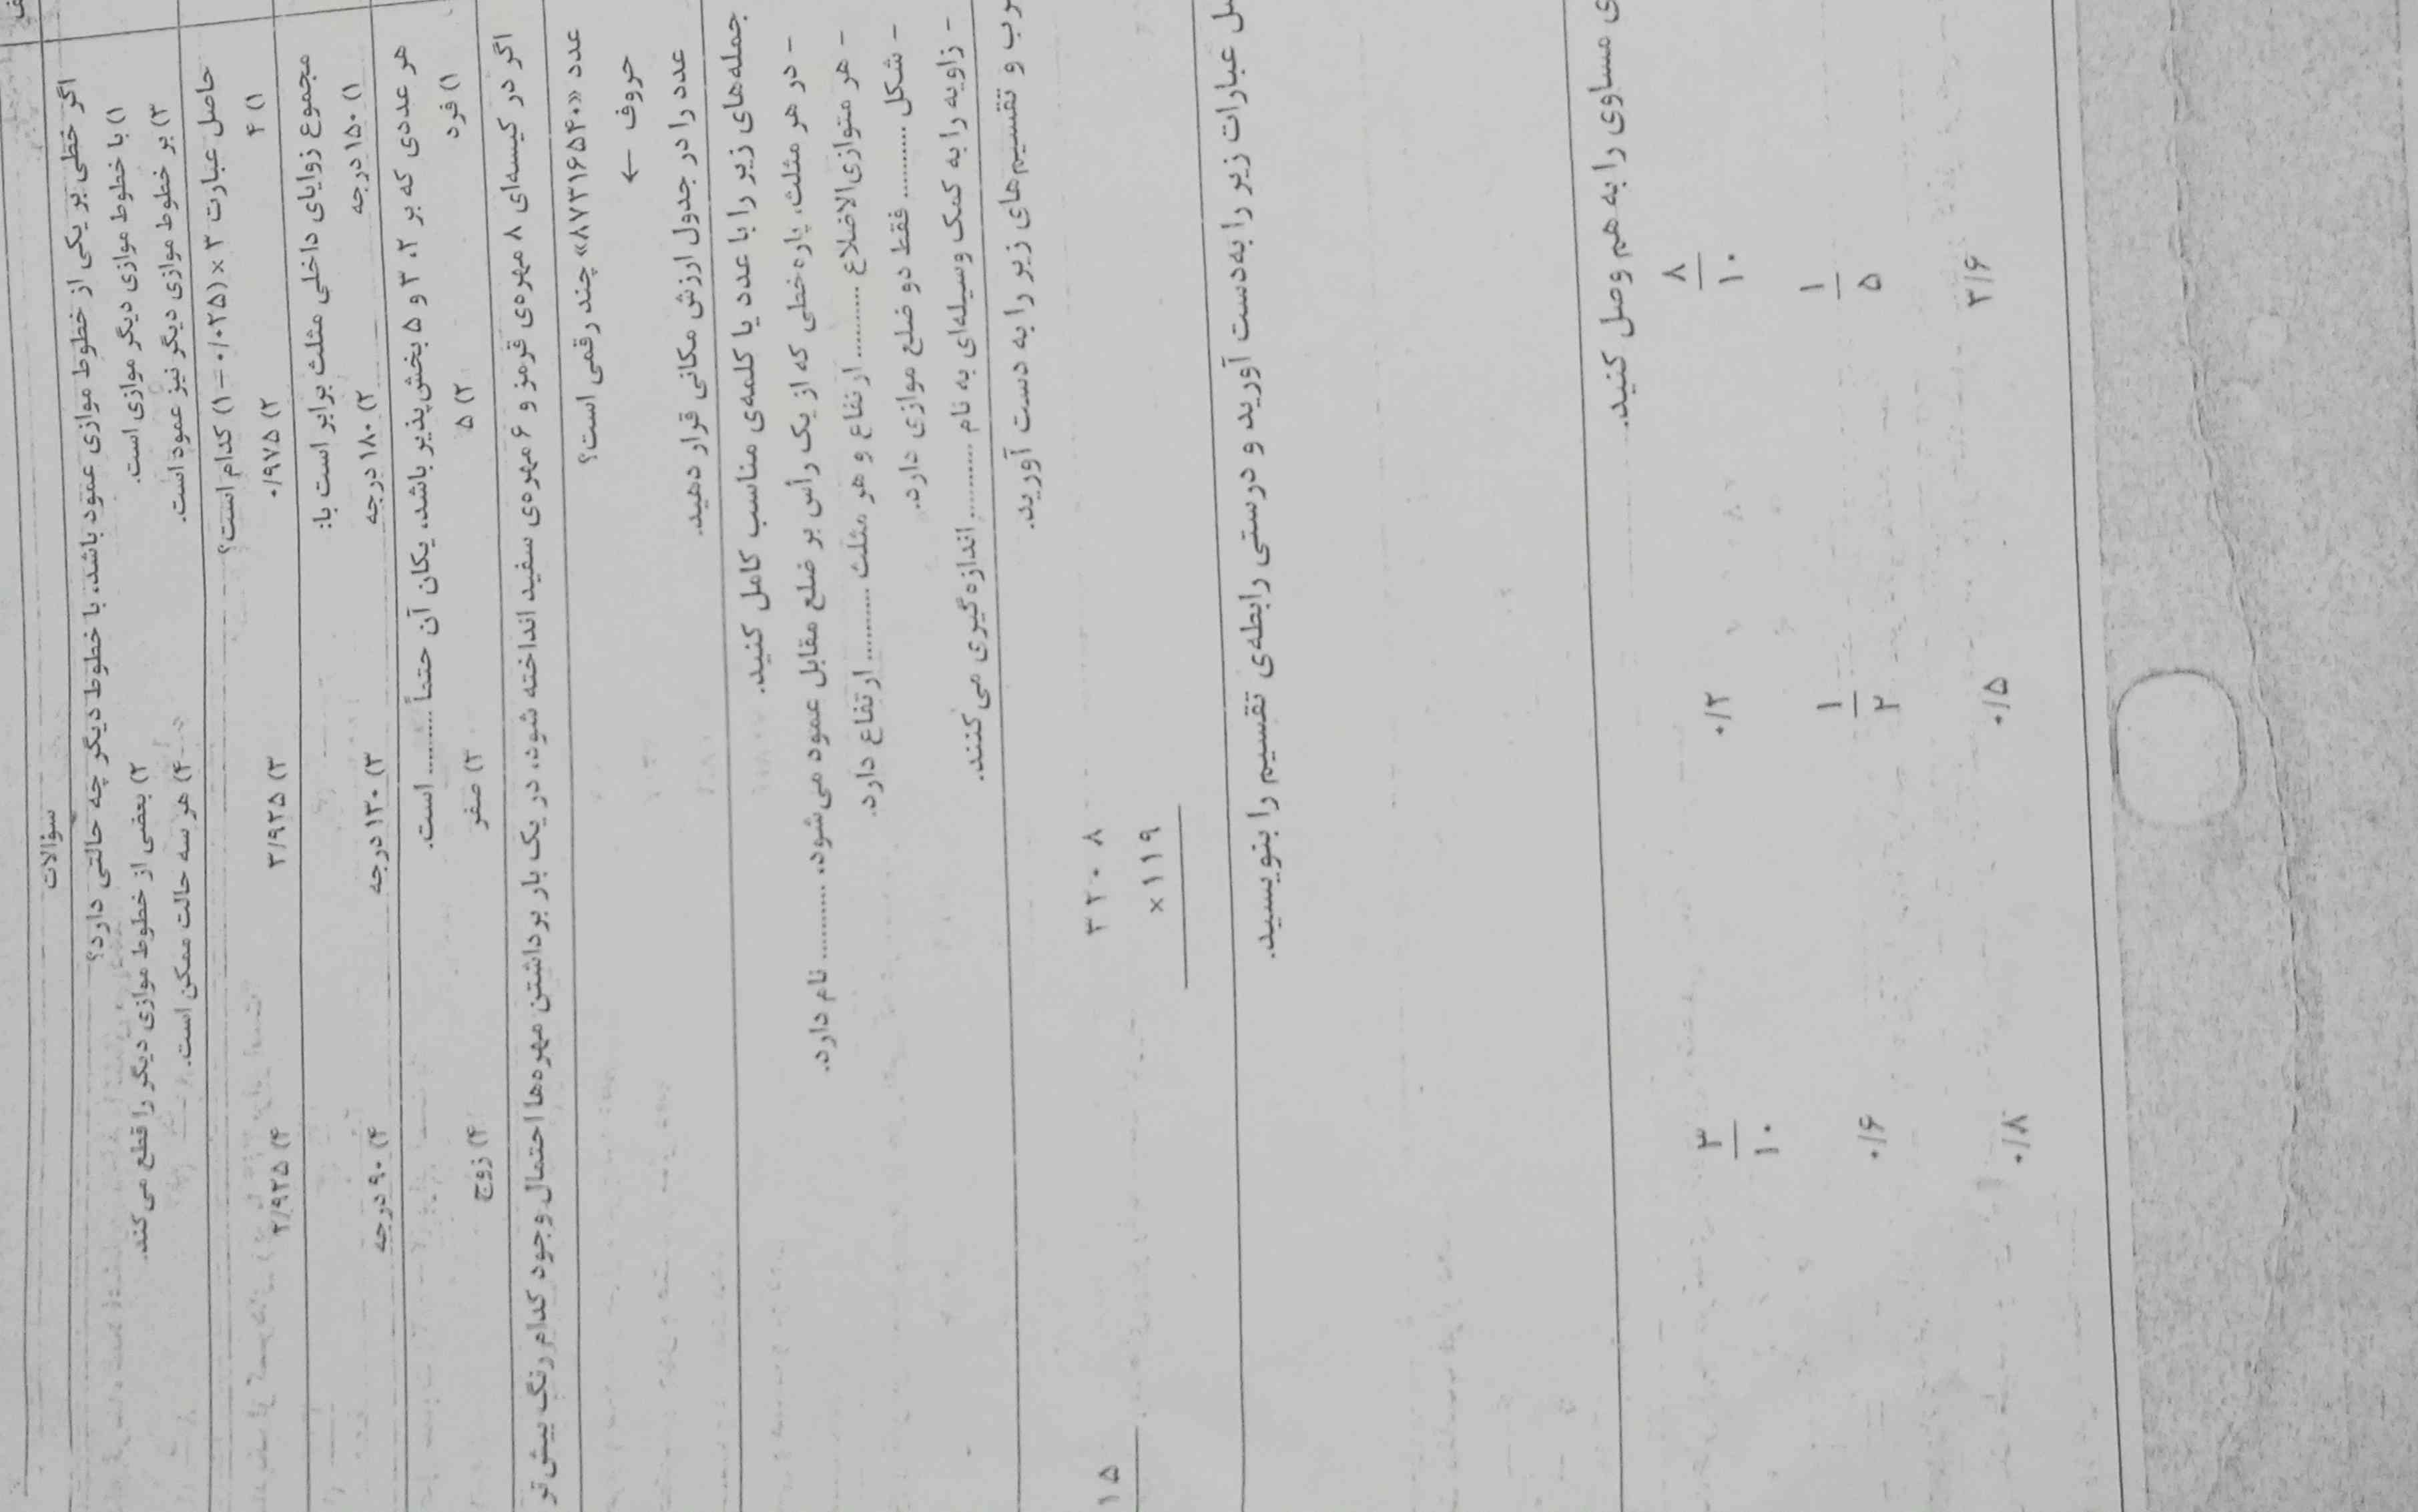 سؤالات
اگر خطی بر یکی از خطوط موازی عمود باشد، با خطوط دیگر چه حالتی دارد؟
۱) با خطوط موازی دیگر موازی است. ۲) بعضی از خطوط موازی دیگر را قطع می‌کند.
۳) بر خطوط موازی دیگر نیز عمود است. ۴) هر سه حالت ممکن است.
حاصل عبارت ۳ × (۰/۰۲۵ − ۱) کدام است؟
۱) ۴ ۲) ۰/۹۷۵ ۳) ۳/۹۲۵ ۴) ۲/۹۲۵
مجموع زوایای داخلی مثلث برابر است با:
۱) ۱۵۰ درجه ۲) ۱۸۰ درجه ۳) ۱۳۰ درجه ۴) ۹۰ درجه
هر عددی که بر ۲، ۳ و ۵ بخش‌پذیر باشد، یکان آن حتماً .......... است.
۱) فرد ۲) ۵ ۳) صفر ۴) زوج
اگر در کیسه‌ای ۸ مهره‌ی قرمز و ۶ مهره‌ی سفید انداخته شود، در یک بار برداشتن مهره‌ها احتمال وجود کدام رنگ بیش‌تر
عدد «۸۷۳۱۶۵۴۰» چند رقمی است؟
حروف ←
عدد را در جدول ارزش مکانی قرار دهید.
جمله‌های زیر را با عدد یا کلمه‌ی مناسب کامل کنید.
- در هر مثلث، پاره‌خطی که از یک رأس بر ضلع مقابل عمود می‌شود، .......... نام دارد.
- هر متوازی‌الاضلاع .......... ارتفاع و هر مثلث .......... ارتفاع دارد.
- شکل .......... فقط دو ضلع موازی دارد.
- زاویه را به کمک وسیله‌ای به نام .......... اندازه‌گیری می‌کنند.
و تقسیم‌های زیر را به دست آورید.
۳۲۰۸
×۱۱۹
۱۵
عبارات زیر را به‌دست آورید و درستی رابطه‌ی تقسیم را بنویسید.
مساوی را به هم وصل کنید.
۸/۱۰ ۰/۲ ۳/۱۰
۱/۵ ۱/۲ ۰/۶
۳/۶ ۰/۵ ۰/۸